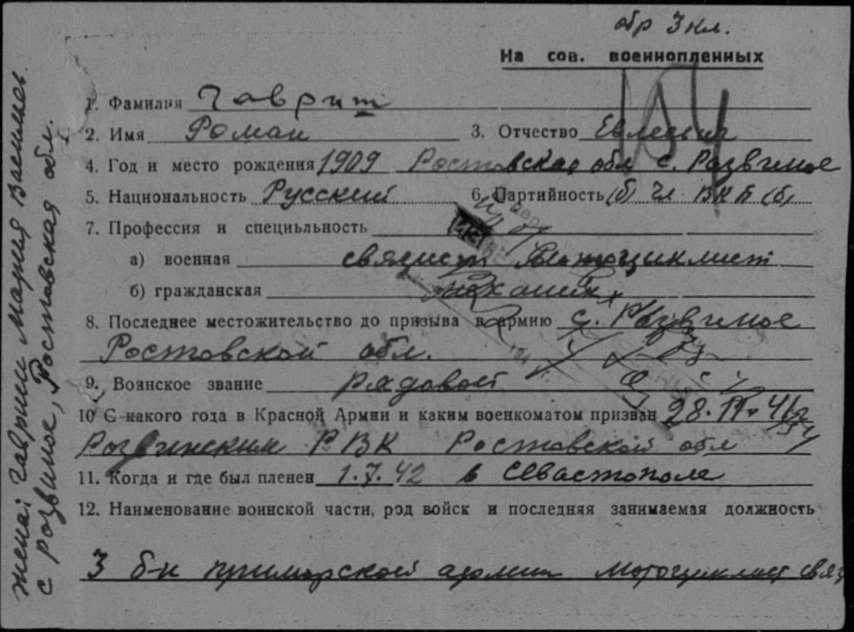 обр 3 кл.
На сов. военнопленных
1. Фамилия Гавриш
2. Имя Роман 3. Отчество Евлеевич
4. Год и место рождения 1909 Ростовская обл с. Развиное
5. Национальность Русский 6. Партийность (б) чл ВКП(б)
7. Профессия и специьльность
а) военная связист мотоциклист
б) гражданская механик
8. Последнее местожительство до призыва в армию с. Развиное
Ростовской обл.
9. Воинское звание рядовой
10 С какого года в Красной Армии и каким военкоматом призван 28. 41
Развинским РВК Ростовской обл
11. Когда и где был пленен 1.7.42 в Севастополе
12. Наименование воинской части, род войск и последняя занимаемая должность
3 б-н приморской армии мотоциклист связ
жена: Гавриш Мария Васильев.
с Розвиное, Ростовская обл.